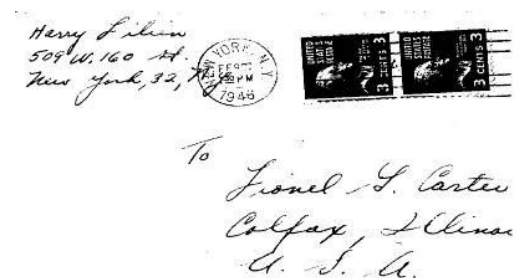 Harry Lilien
509 W. 160 St.
New York, 32, N.Y.
NEW YORK, N.Y.
FEB
PM
1946
UNITED STATES POSTAGE
3 CENTS 3
UNITED STATES POSTAGE
3 CENTS 3
To
Lionel L. Carter
Colfax, Illinois
U. S. A.